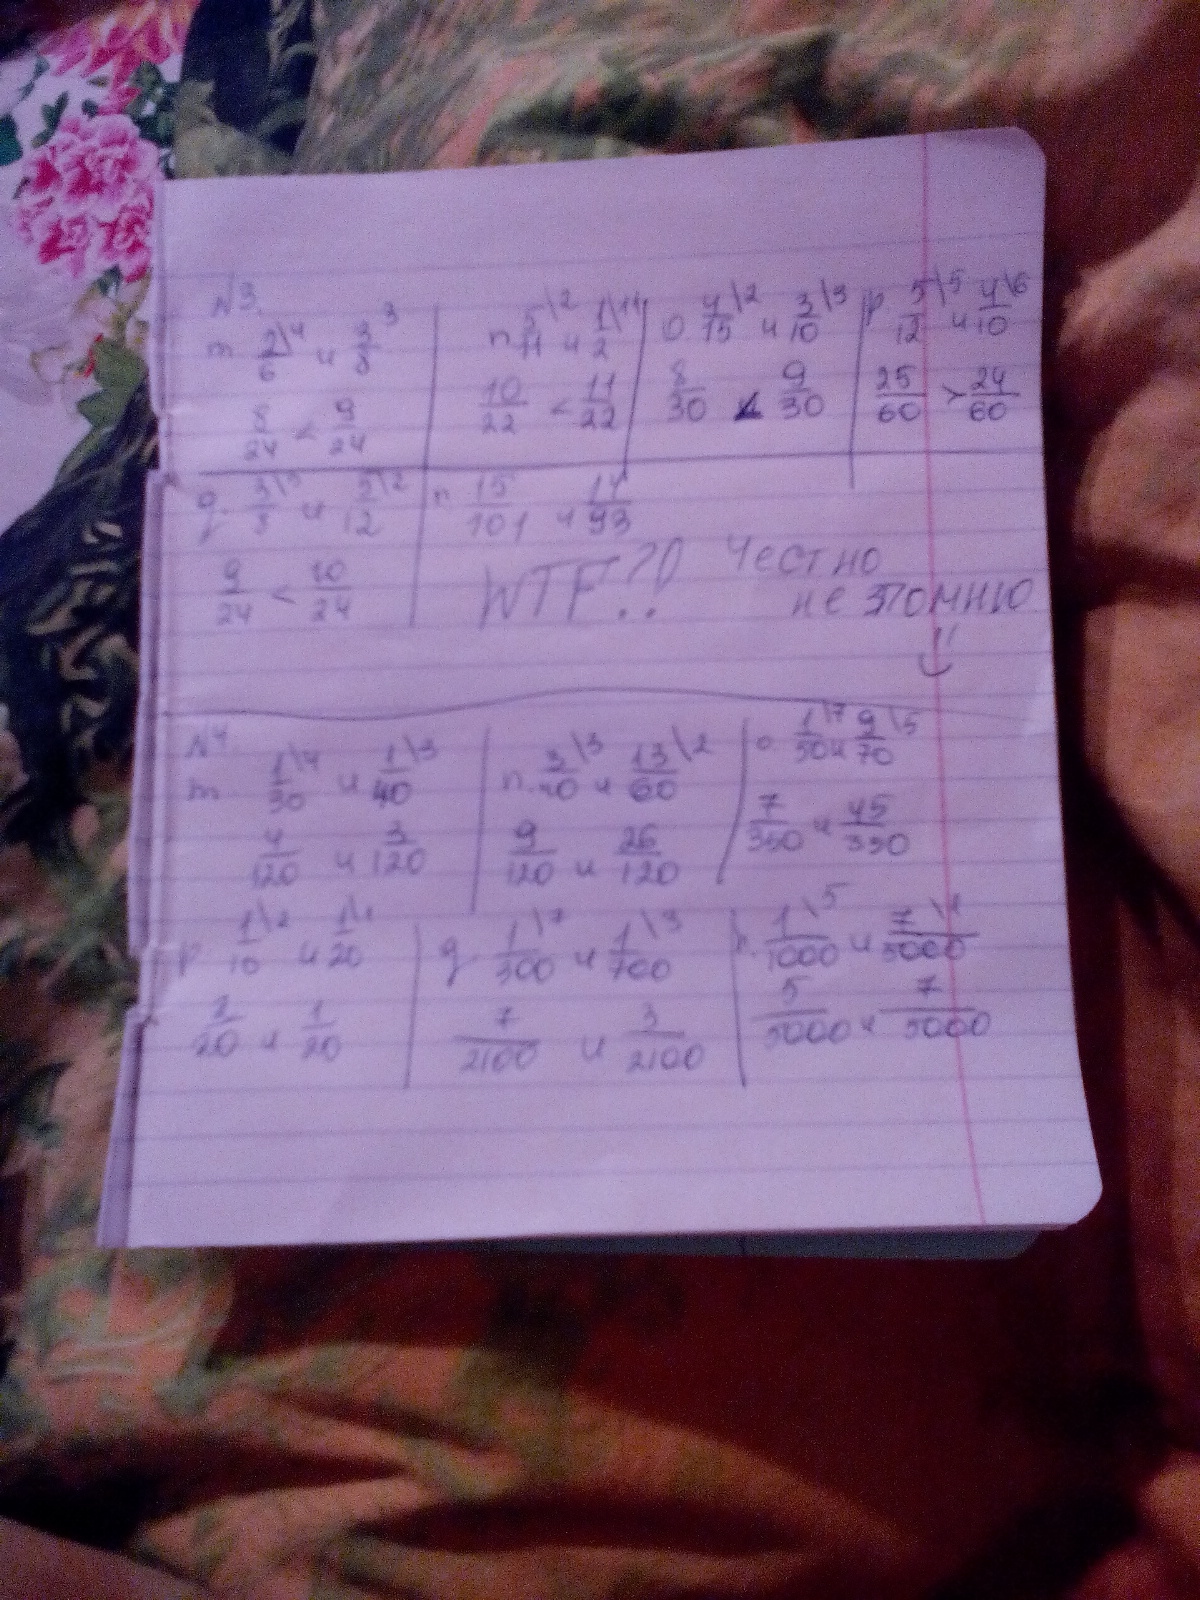 N3.
m. 2/6 \4 и 3/8 3
8/24 < 9/24
n. 5/11 \2 и 1/2 \11
10/22 < 11/22
o. 4/15 \2 и 3/10 \3
8/30 < 9/30
p. 5/12 \5 и 4/10 \6
25/60 > 24/60
q. 3/8 \3 и 5/12 \2
9/24 < 10/24
15/101 и 14/93
WTF?? Честно
не
N4
m 1/30 \4 и 1/40 \3
4/120 и 3/120
n. 3/40 \3 и 13/60 \2
9/120 и 26/120
o. 1/50 \7 и 9/70 \5
7/350 и 45/350
p. 1/10 \2 и 1/20 \1
2/20 и 1/20
q. 1/300 \7 и 1/700 \3
7/2100 и 3/2100
1/1000 \5 и 7/5000 \1
5/5000 и 7/5000